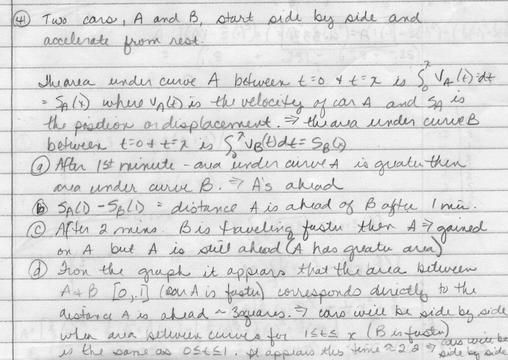 (41) Two cars, A and B, start side by side and
accelerate from rest.
The area under curve A between t=0 & t=x is ∫₀ˣ V_A(t)dt
= S_A(x) where V_A(t) is the velocity of car A and S_A is
the position or displacement. ⇒ the area under curve B
between t=0 & t=x is ∫₀ˣ V_B(t)dt = S_B(x)
(a) After 1st minute - area under curve A is greater then
area under curve B. ⇒ A's ahead
(b) S_A(1) - S_B(1) = distance A is ahead of B after 1 min.
(c) After 2 mins. B is traveling faster then A ⇒ gained
on A but A is still ahead (A has greater area)
(d) From the graph it appears that the area between
A & B [0,1] (car A is faster) corresponds directly to the
distance A is ahead ~ 3 squares. ⇒ cars will be side by side
when area between curves for 1≤t≤x (B is faster)
is the same as 0≤t≤1. It appears this time ≈ 2.2 ⇒ cars will be
side by side